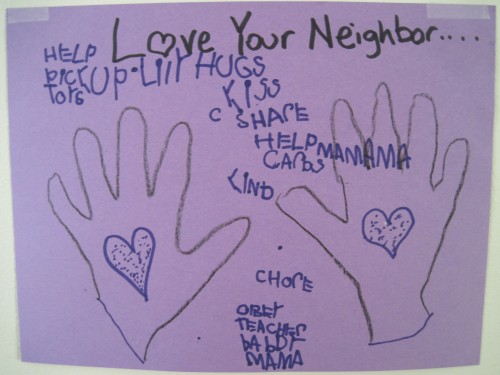 Love Your Neighbor....
HELP
PICK UP · LILY HUGS
TOYS
KISS
C SHARE
HELP MAMAMA
CARDS
KIND
CHORE
OBEY
TEACHER
DADDY
MAMA